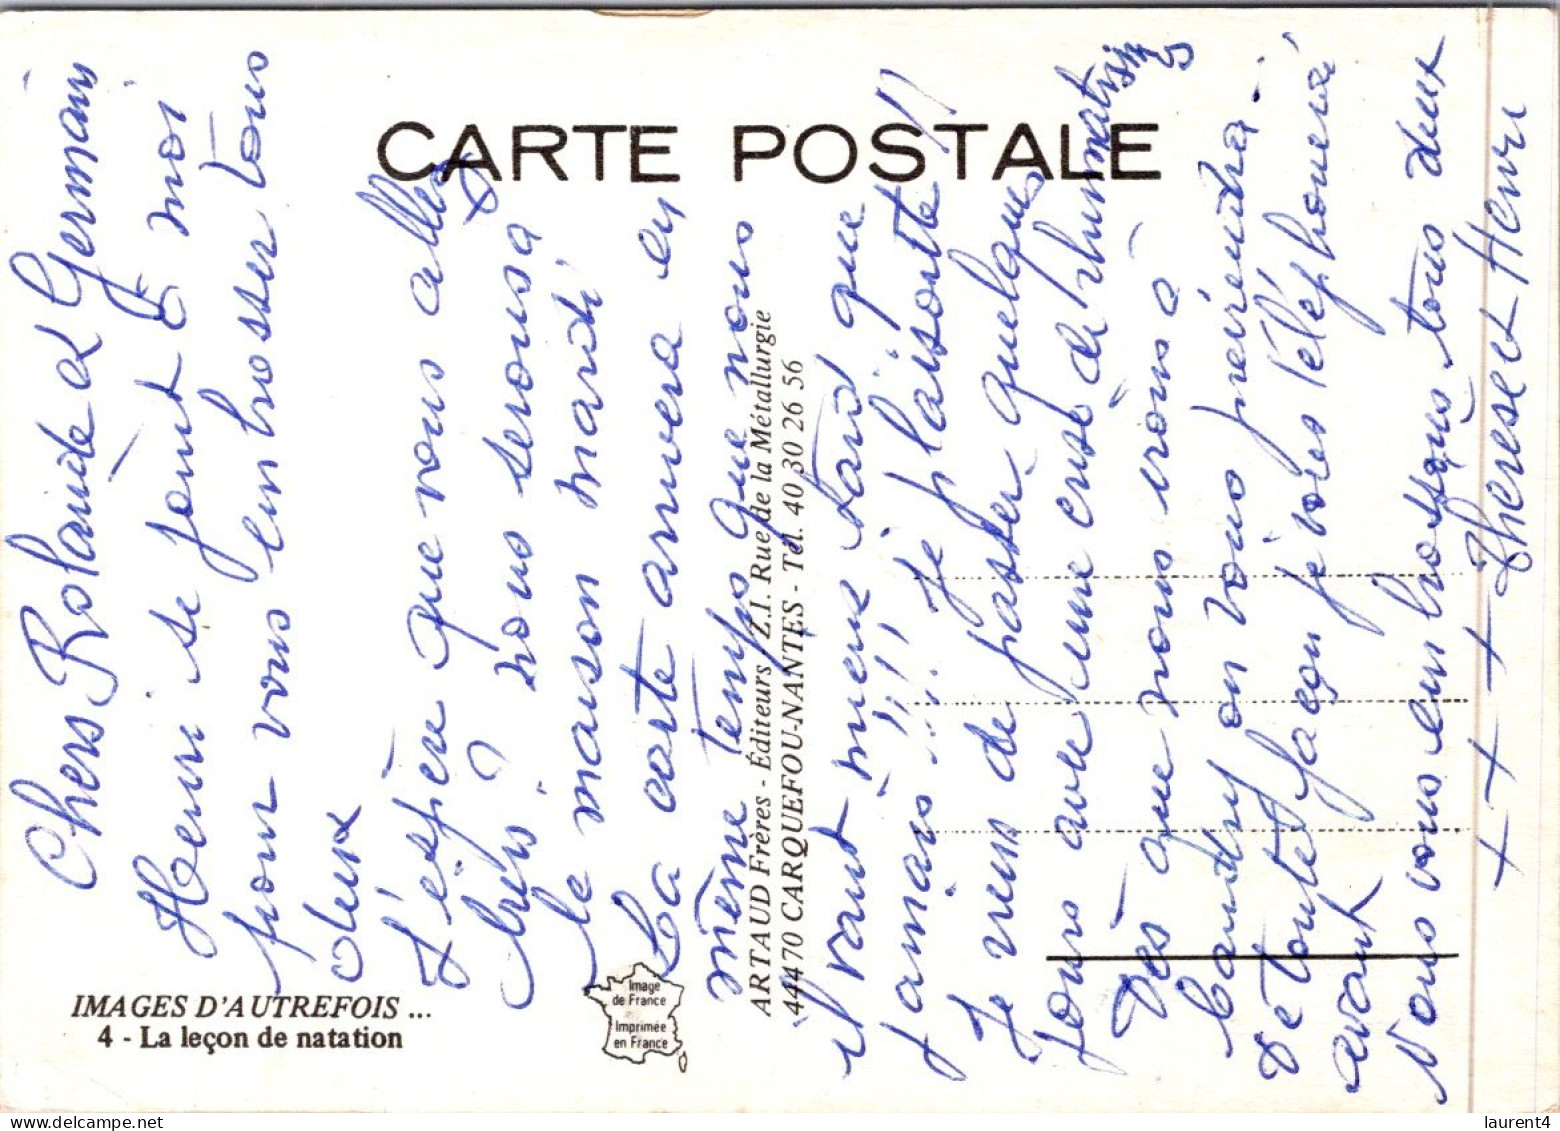 CARTE POSTALE
Chers Rolande et Germain
Henri se joint à moi
pour vous embrasser tous
deux
J'espère que vous allez
bien ? nous serons à
le maison mardi
La carte arrivera en
même temps que nous
il vaut mieux tard que
jamais !!!! Je plaisante !!
Je viens de passer quelques
jours avec une crise de rhumatisme
Dès que nous irons à
Bandry on vous préviendra
De toute façon je vous téléphonerai
avant
Nous vous embrassons tous deux
+ + + + Therese et Henri
IMAGES D'AUTREFOIS ...
4 - La leçon de natation
Image
de France
Imprimée
en France
ARTAUD Frères - Éditeurs Z.I. Rue de la Métallurgie
44470 CARQUEFOU-NANTES - Tél. 40 30 26 56
laurent4